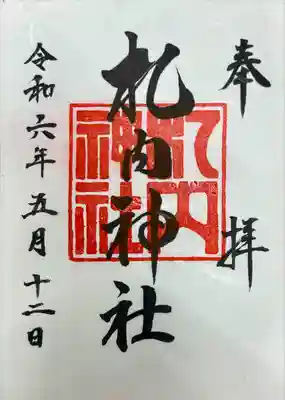 奉拝
札内神社
札内神社
令和六年五月十二日